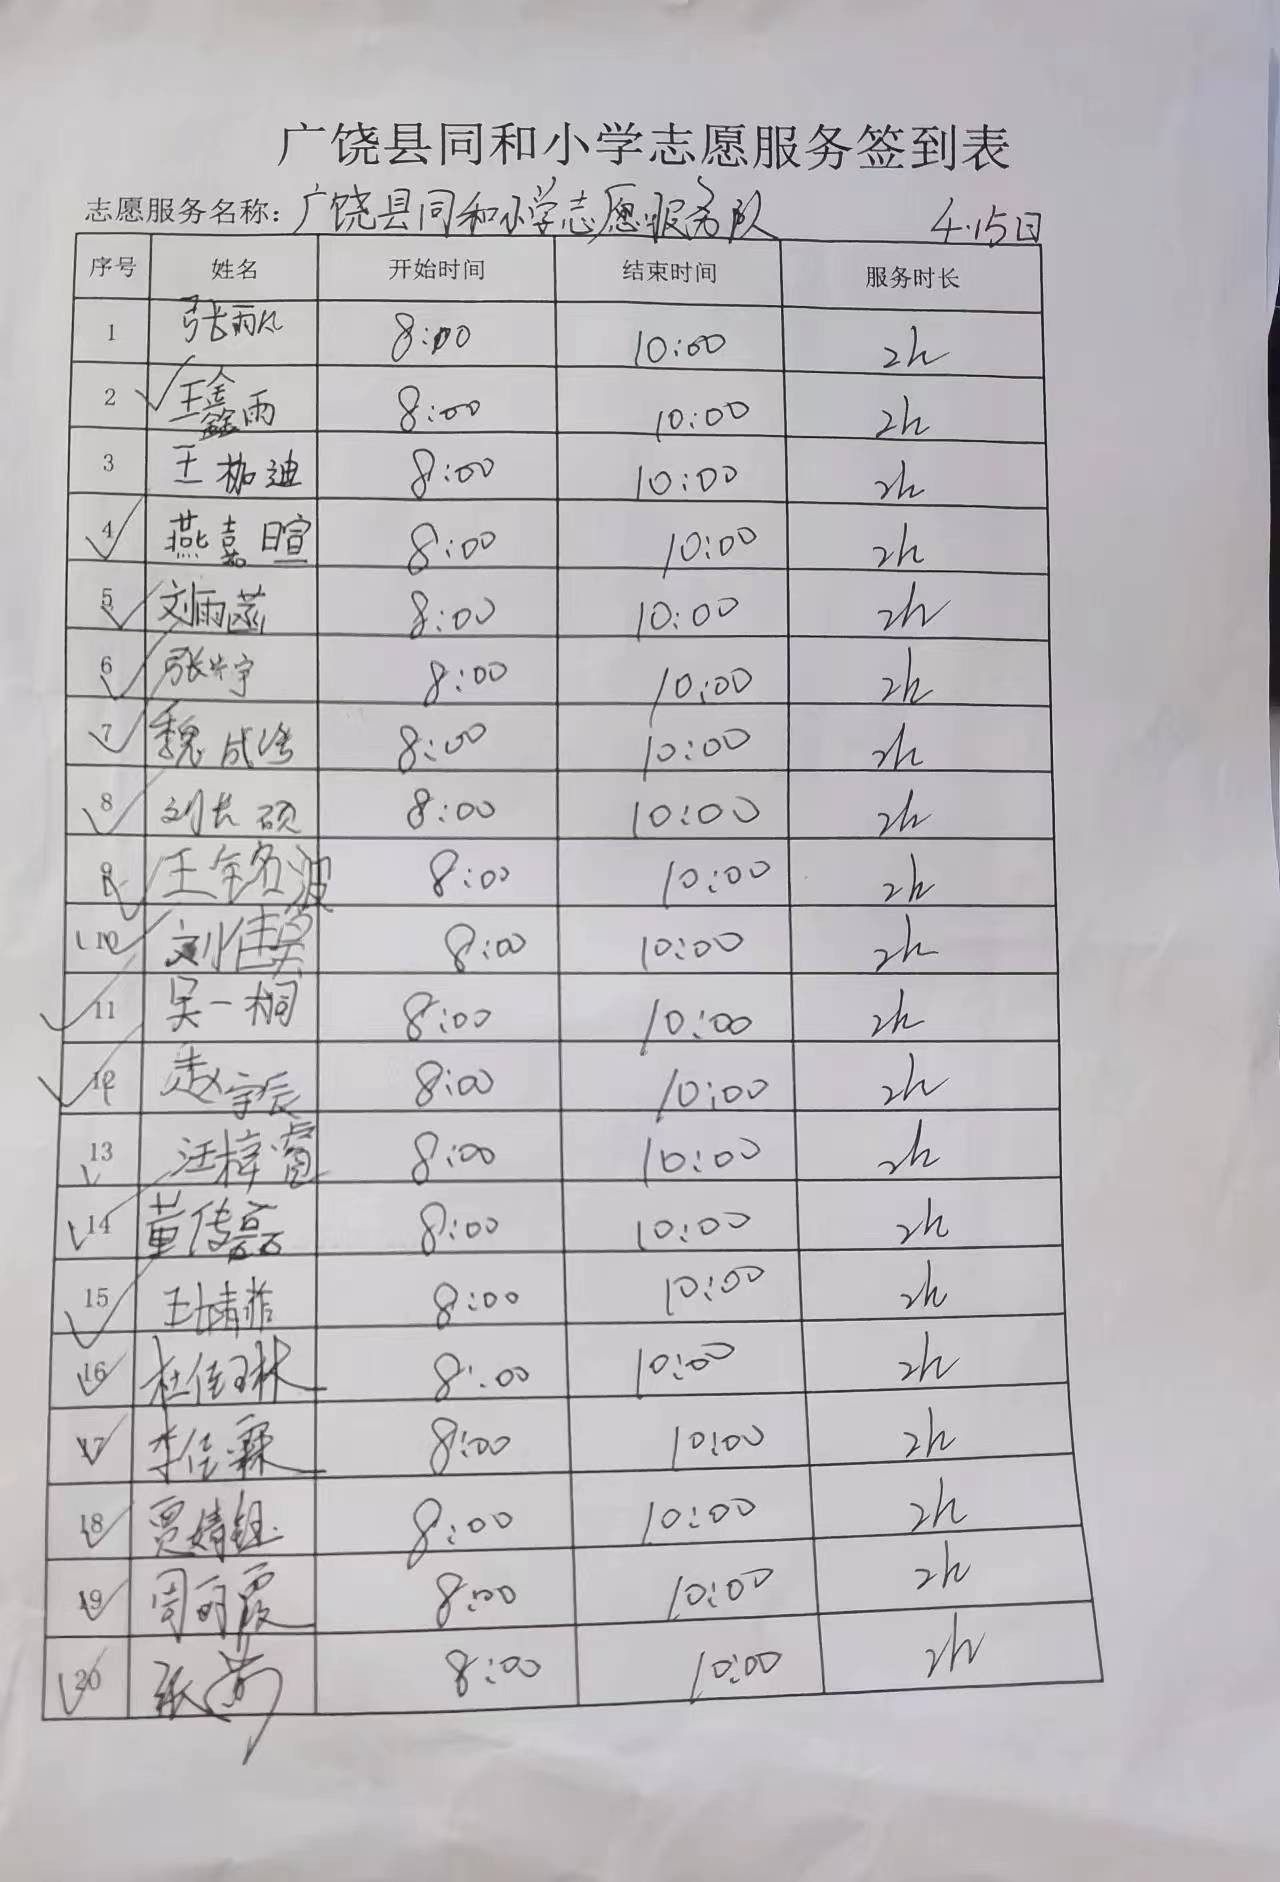 广饶县同和小学志愿服务签到表
志愿服务名称：广饶县同和小学志愿服务队 4.15日
序号 姓名 开始时间 结束时间 服务时长
1 张雨 8:00 10:00 2h
2 王鑫雨 8:00 10:00 2h
3 王枷迪 8:00 10:00 2h
4 燕嘉暄 8:00 10:00 2h
5 刘雨菡 8:00 10:00 2h
6 张 宇 8:00 10:00 2h
7 魏成 8:00 10:00 2h
8 刘长硕 8:00 10:00 2h
9 王 波 8:00 10:00 2h
10 刘佳昊 8:00 10:00 2h
11 吴一桐 8:00 10:00 2h
12 赵宇辰 8:00 10:00 2h
13 汪梓睿 8:00 10:00 2h
14 董传磊 8:00 10:00 2h
15 王婧菲 8:00 10:00 2h
16 杜佳琳 8:00 10:00 2h
17 李佳霖 8:00 10:00 2h
18 贾婧钰 8:00 10:00 2h
19 周雨霞 8:00 10:00 2h
20 张 8:00 10:00 2h